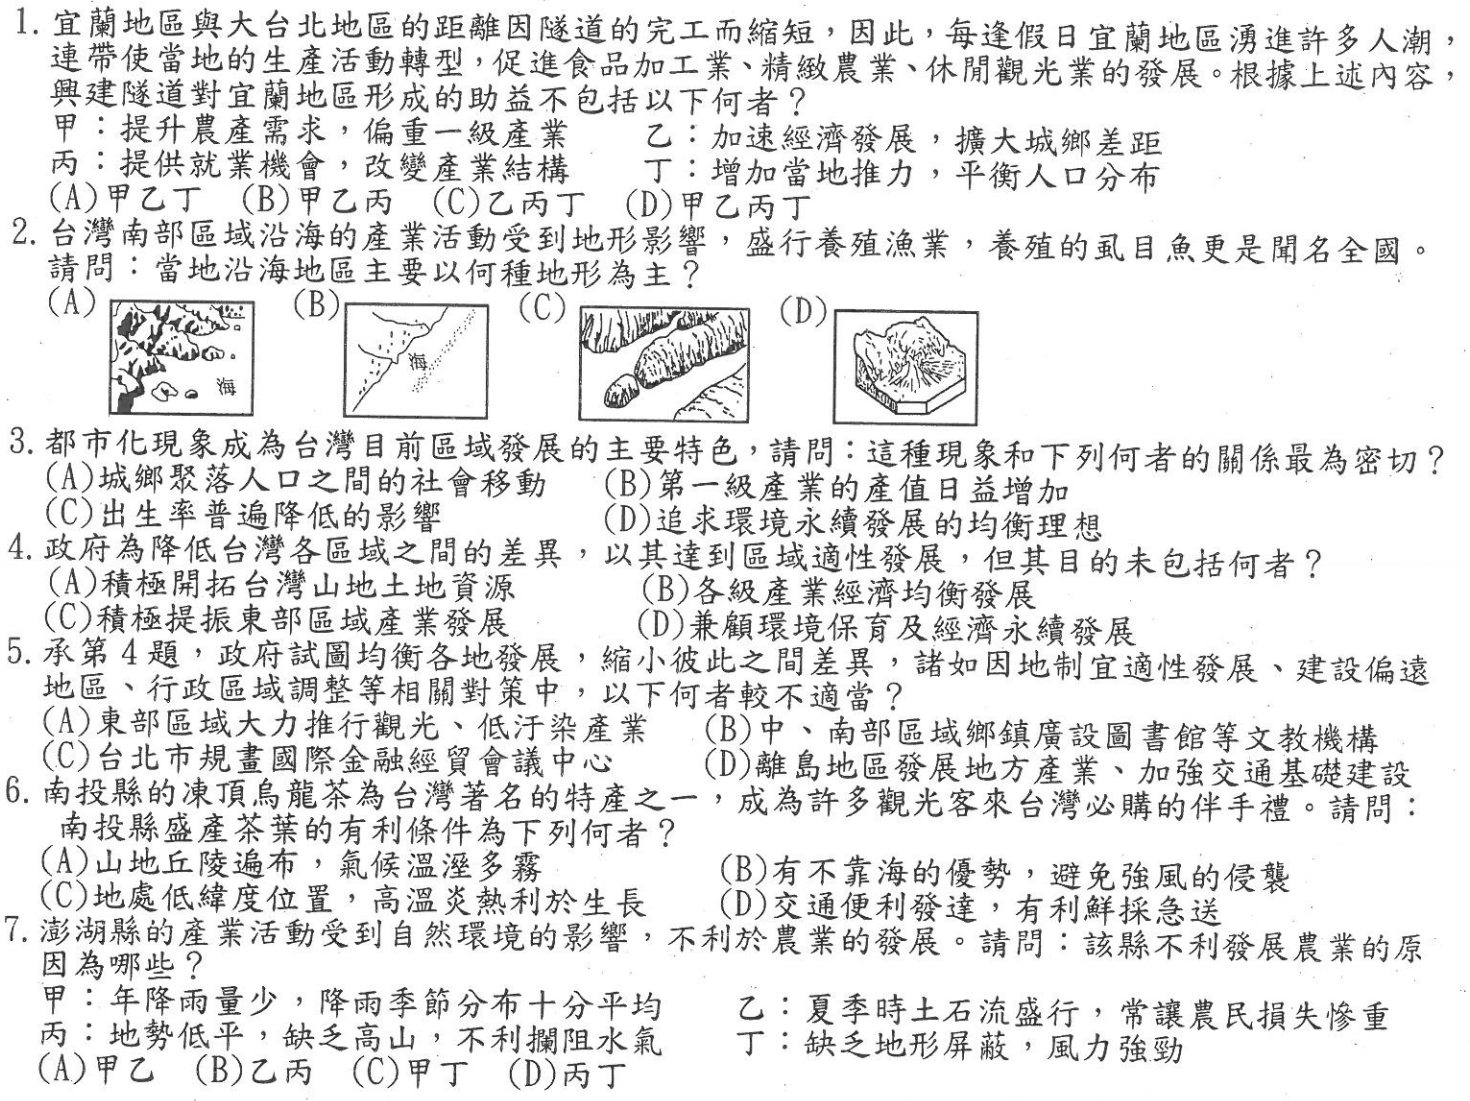 1. 宜蘭地區與大台北地區的距離因隧道的完工而縮短，因此，每逢假日宜蘭地區湧進許多人潮，
連帶使當地的生產活動轉型，促進食品加工業、精緻農業、休閒觀光業的發展。根據上述內容，
興建隧道對宜蘭地區形成的助益不包括以下何者？
甲：提升農產需求，偏重一級產業　　乙：加速經濟發展，擴大城鄉差距
丙：提供就業機會，改變產業結構　　丁：增加當地推力，平衡人口分布
(A)甲乙丁　(B)甲乙丙　(C)乙丙丁　(D)甲乙丙丁
2. 台灣南部區域沿海的產業活動受到地形影響，盛行養殖漁業，養殖的虱目魚更是聞名全國。
請問：當地沿海地區主要以何種地形為主？
(A)　(B)　(C)　(D)
海　海
3. 都市化現象成為台灣目前區域發展的主要特色，請問：這種現象和下列何者的關係最為密切？
(A)城鄉聚落人口之間的社會移動　(B)第一級產業的產值日益增加
(C)出生率普遍降低的影響　(D)追求環境永續發展的均衡理想
4. 政府為降低台灣各區域之間的差異，以其達到區域適性發展，但其目的未包括何者？
(A)積極開拓台灣山地土地資源　(B)各級產業經濟均衡發展
(C)積極提振東部區域產業發展　(D)兼顧環境保育及經濟永續發展
5. 承第4題，政府試圖均衡各地發展，縮小彼此之間差異，諸如因地制宜適性發展、建設偏遠
地區、行政區域調整等相關對策中，以下何者較不適當？
(A)東部區域大力推行觀光、低汙染產業　(B)中、南部區域鄉鎮廣設圖書館等文教機構
(C)台北市規畫國際金融經貿會議中心　(D)離島地區發展地方產業、加強交通基礎建設
6. 南投縣的凍頂烏龍茶為台灣著名的特產之一，成為許多觀光客來台灣必購的伴手禮。請問：
南投縣盛產茶葉的有利條件為下列何者？
(A)山地丘陵遍布，氣候溫溼多霧　(B)有不靠海的優勢，避免強風的侵襲
(C)地處低緯度位置，高溫炎熱利於生長　(D)交通便利發達，有利鮮採急送
7. 澎湖縣的產業活動受到自然環境的影響，不利於農業的發展。請問：該縣不利發展農業的原
因為哪些？
甲：年降雨量少，降雨季節分布十分平均　乙：夏季時土石流盛行，常讓農民損失慘重
丙：地勢低平，缺乏高山，不利攔阻水氣　丁：缺乏地形屏蔽，風力強勁
(A)甲乙　(B)乙丙　(C)甲丁　(D)丙丁